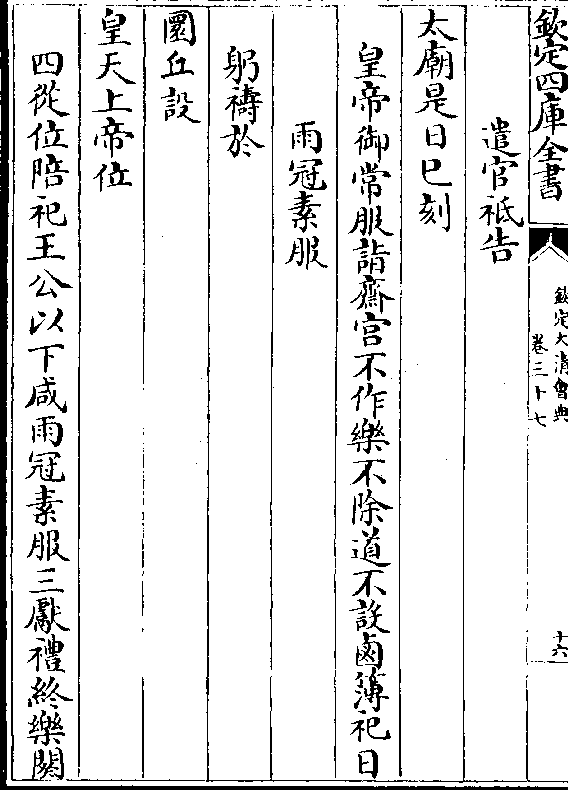 欽定四庫全書
欽定大清會典
卷三十七
十六
遣官祗告
太廟是日巳刻
皇帝御常服詣齋宮不作樂不除道不設鹵簿祀日
雨冠素服
躬禱於
圜丘設
皇天上帝位
四從位陪祀王公以下咸雨冠素服三獻禮終樂闋